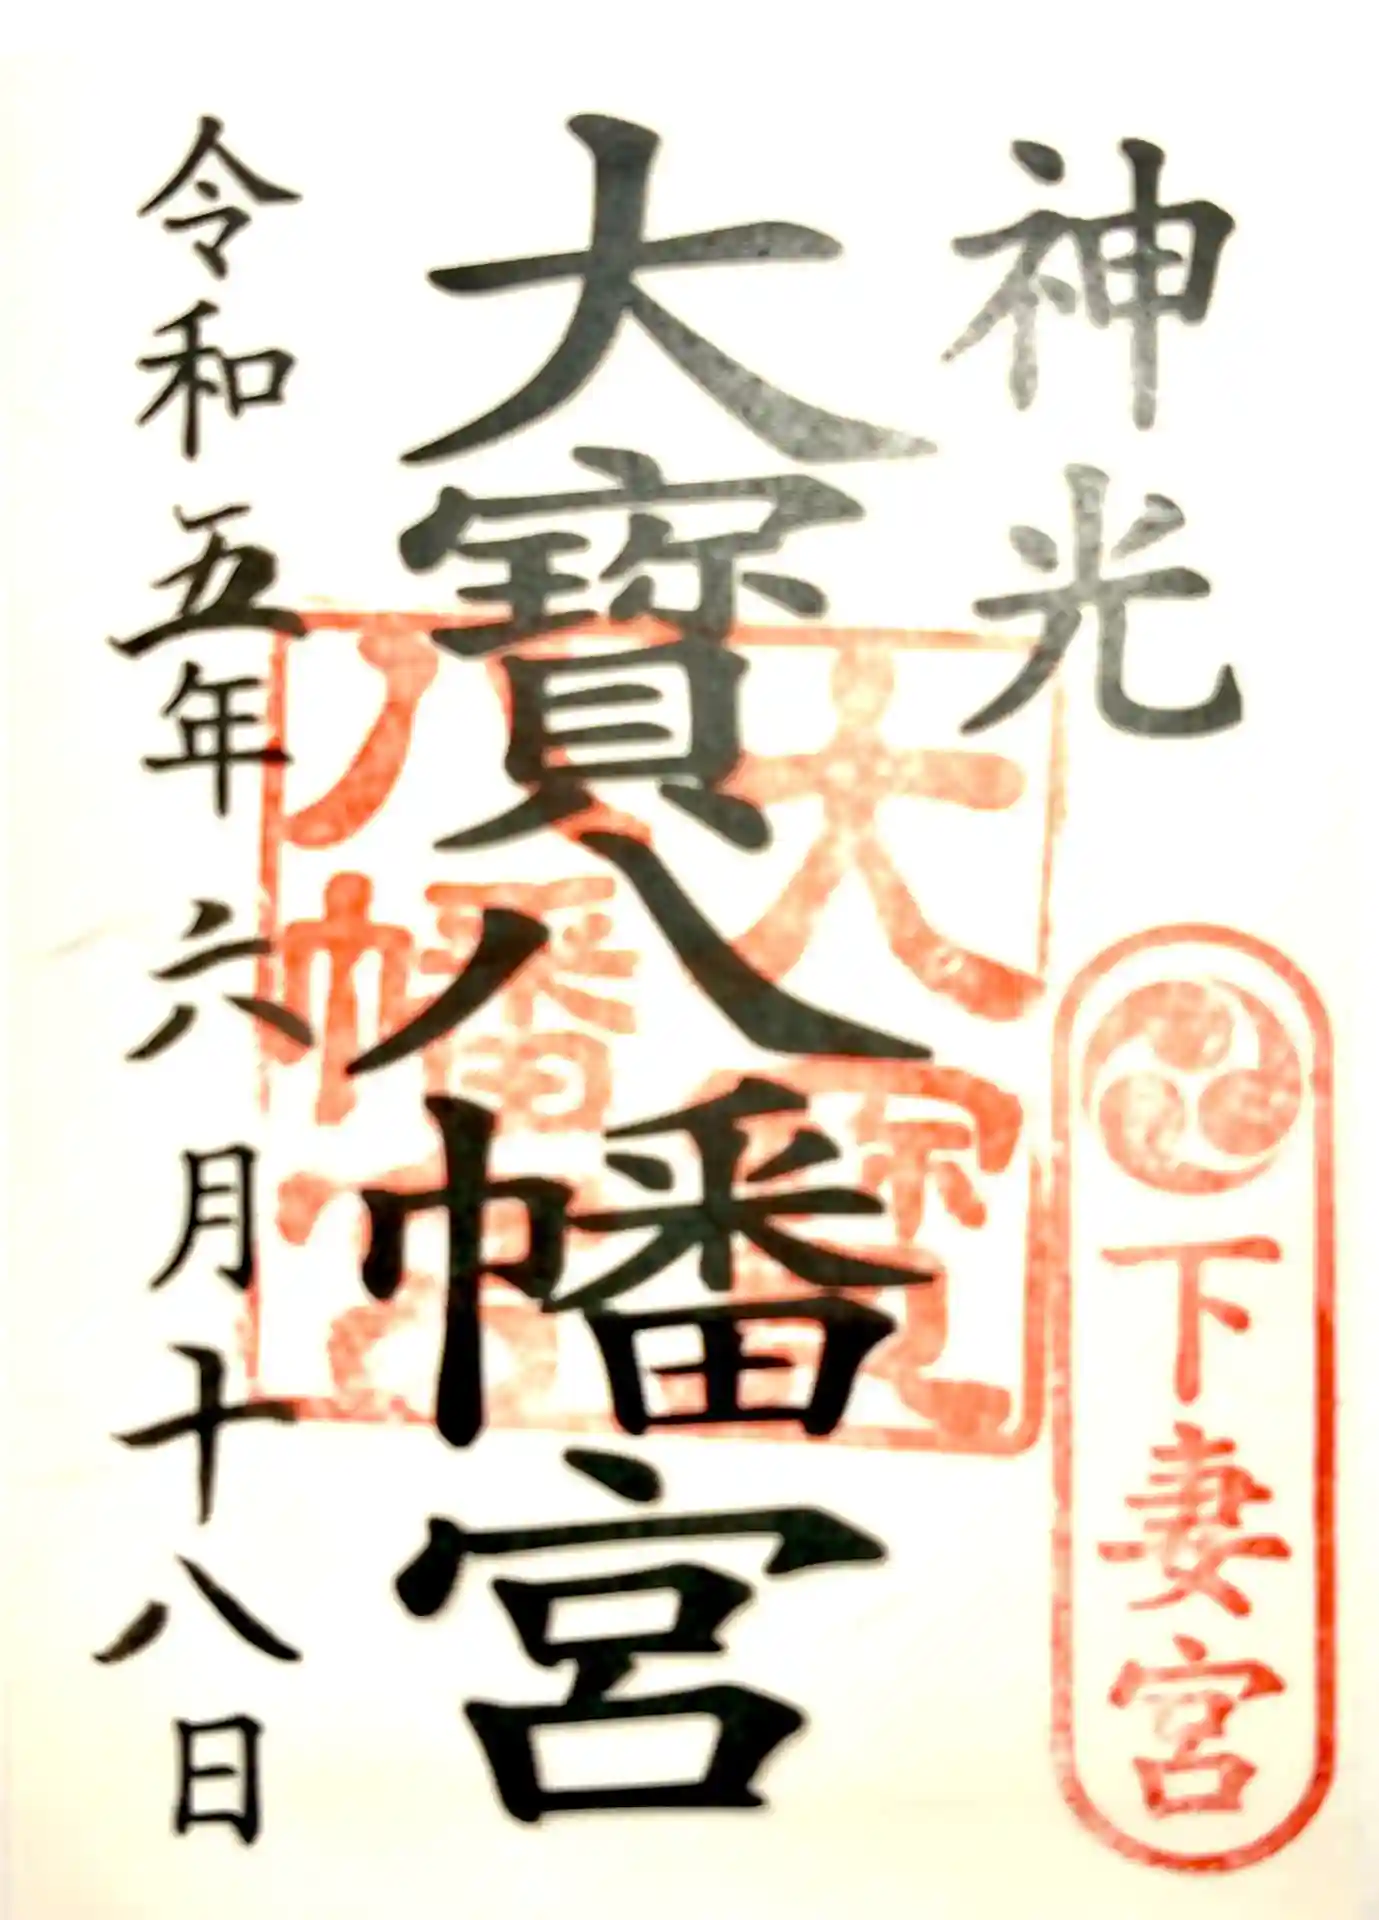 神光
下妻宮
大寶八幡宮
大宝
八幡宮
令和五年六月十八日